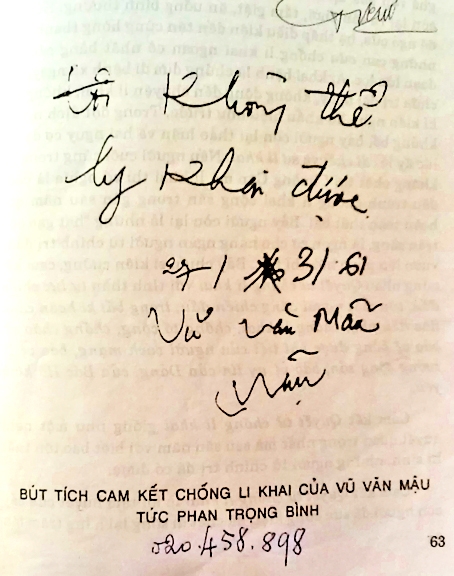 Tôi không thể
ly khai được
27/3/61
Vũ Văn Mẫu
Mẫu
BÚT TÍCH CAM KẾT CHỐNG LI KHAI CỦA VŨ VĂN MẬU
TỨC PHAN TRỌNG BÌNH
020.458.898
63